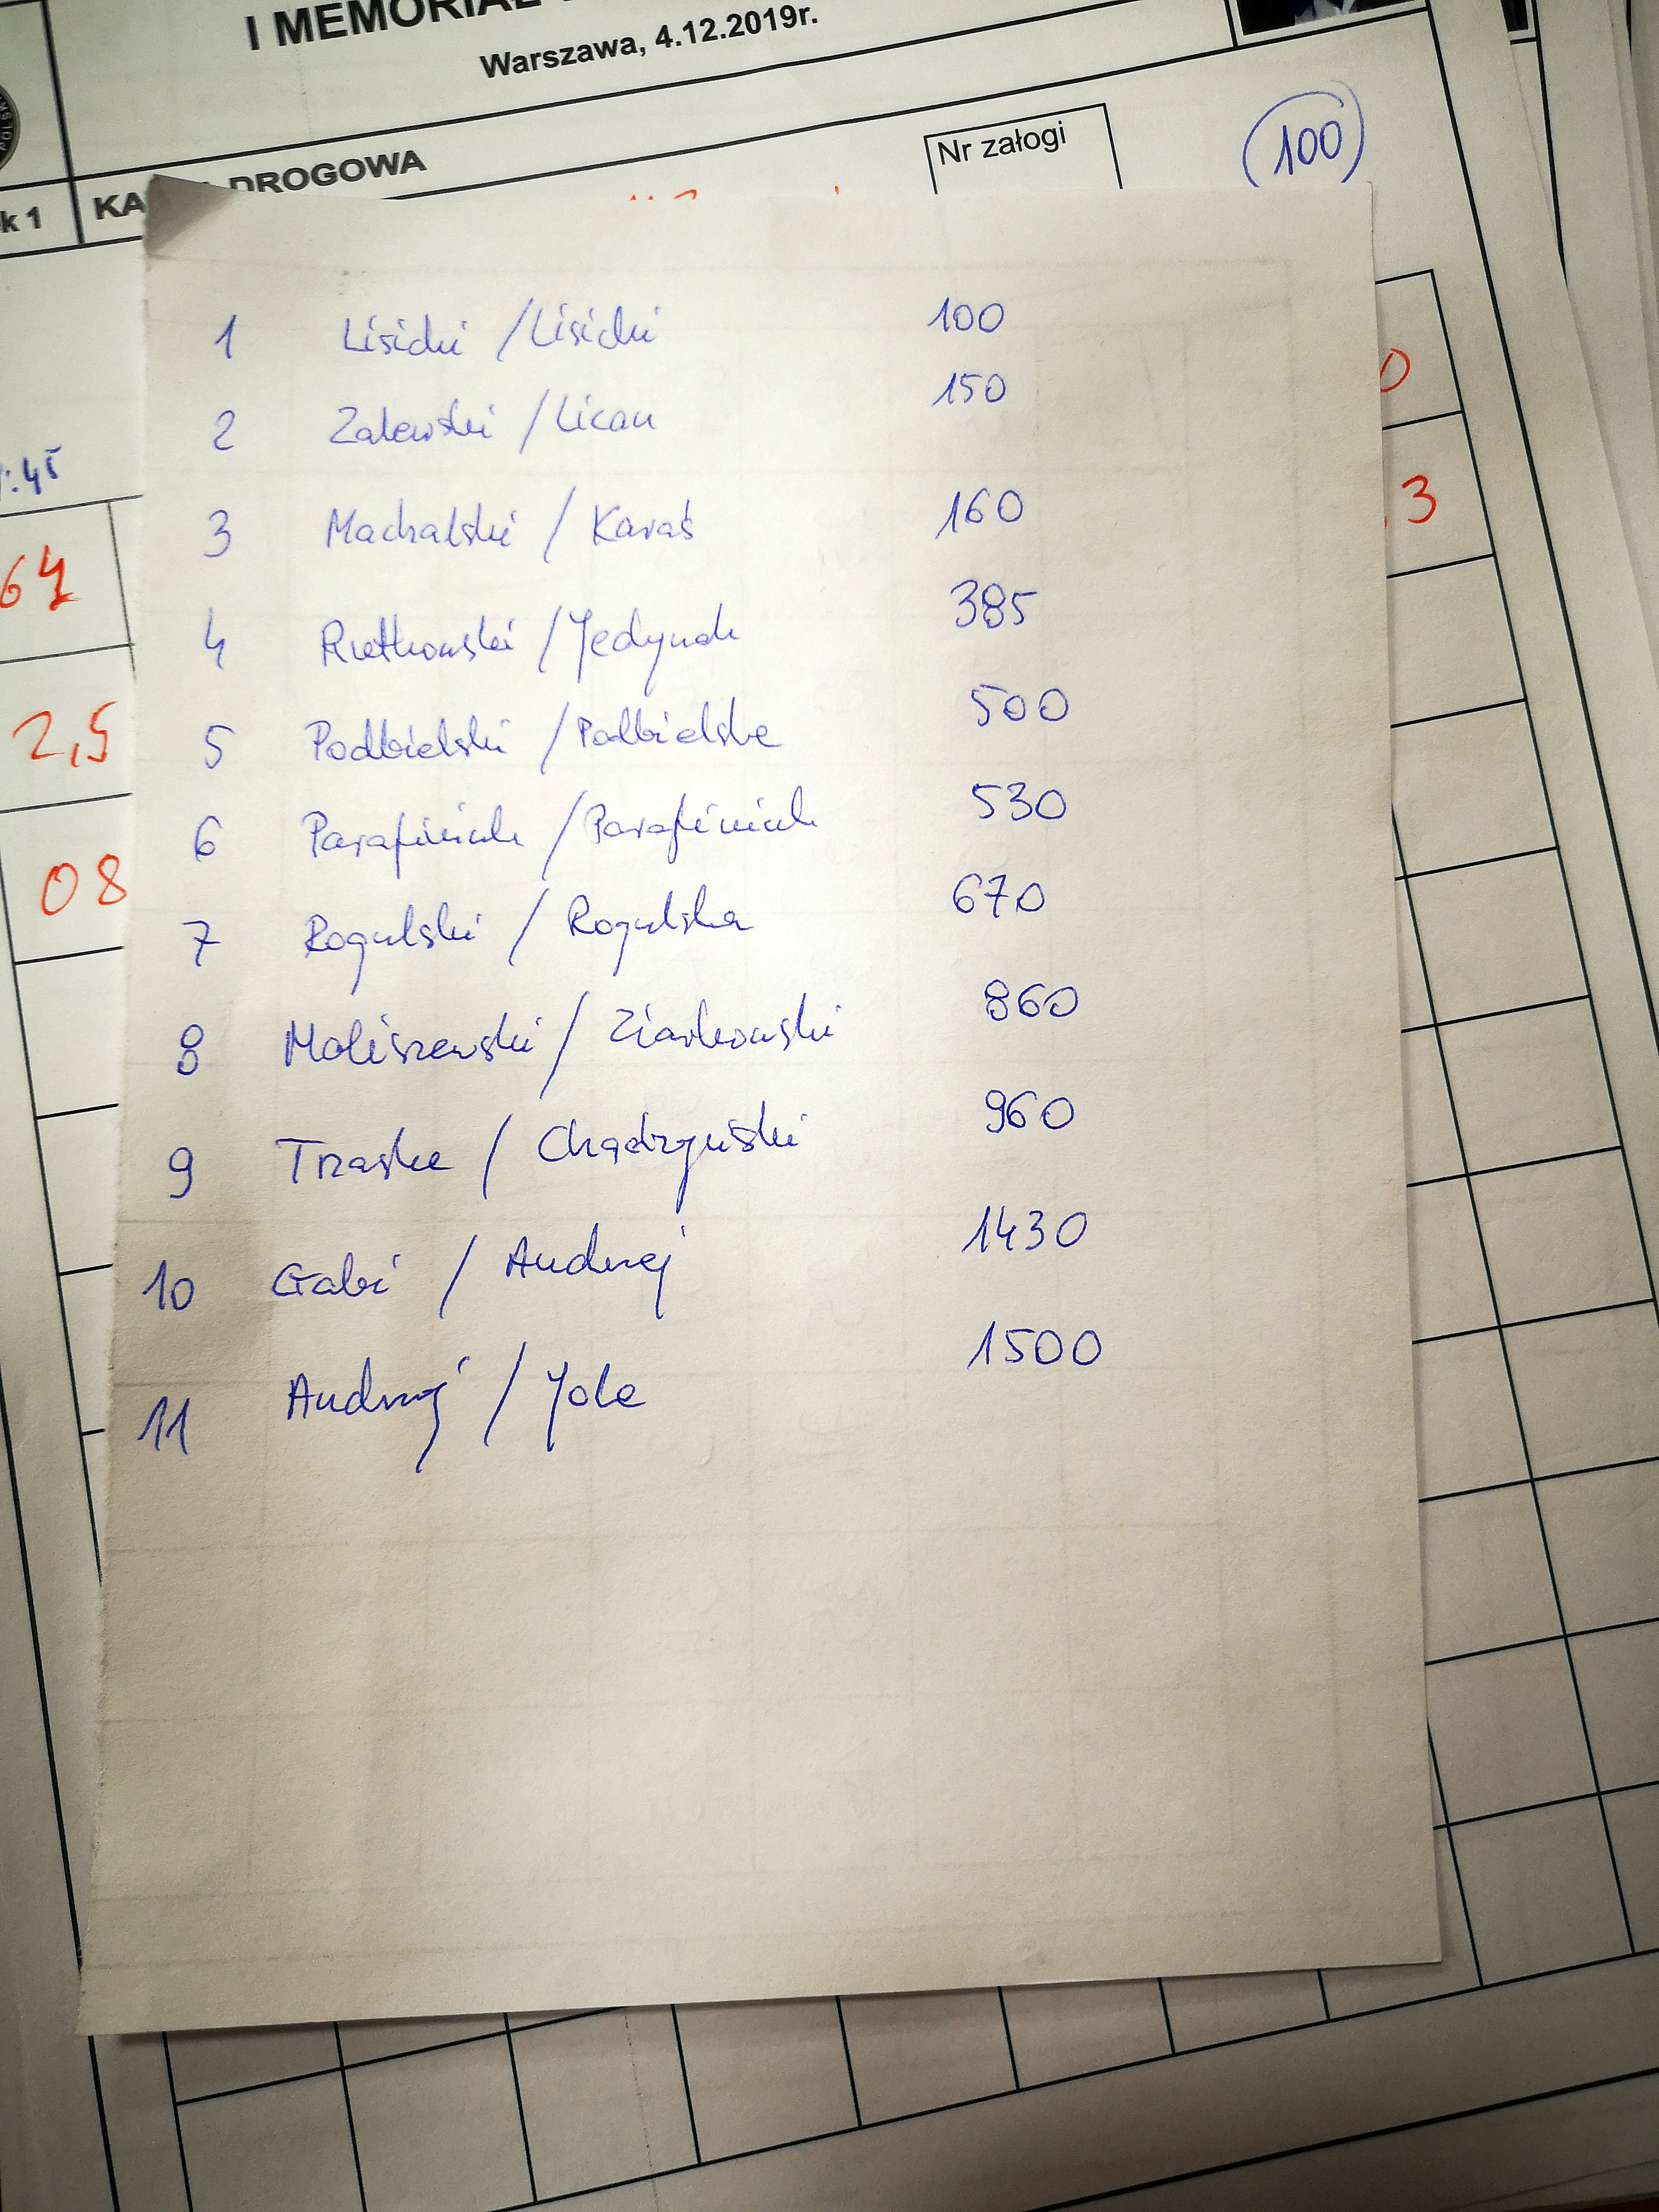 I MEMORIAŁ
Warszawa, 4.12.2019r.
Nr załogi
100
DROGOWA
k 1 KA
1 Lisicki / Lisicki 100
2 Zalewski / Licau 150
3 Machalski / Karaś 160
:45
3
64
4 Rutkowski / Jedynak 385
2,5
5 Podbielski / Podbielska 500
6 Parafiniuk / Parafiniuk 530
08
7 Rogulski / Rogulska 670
8 Maliszewski / Ziarkowski 860
9 Trzaska / Chądzyński 960
10 Gabi / Andrzej 1430
11 Andrzej / Jola 1500